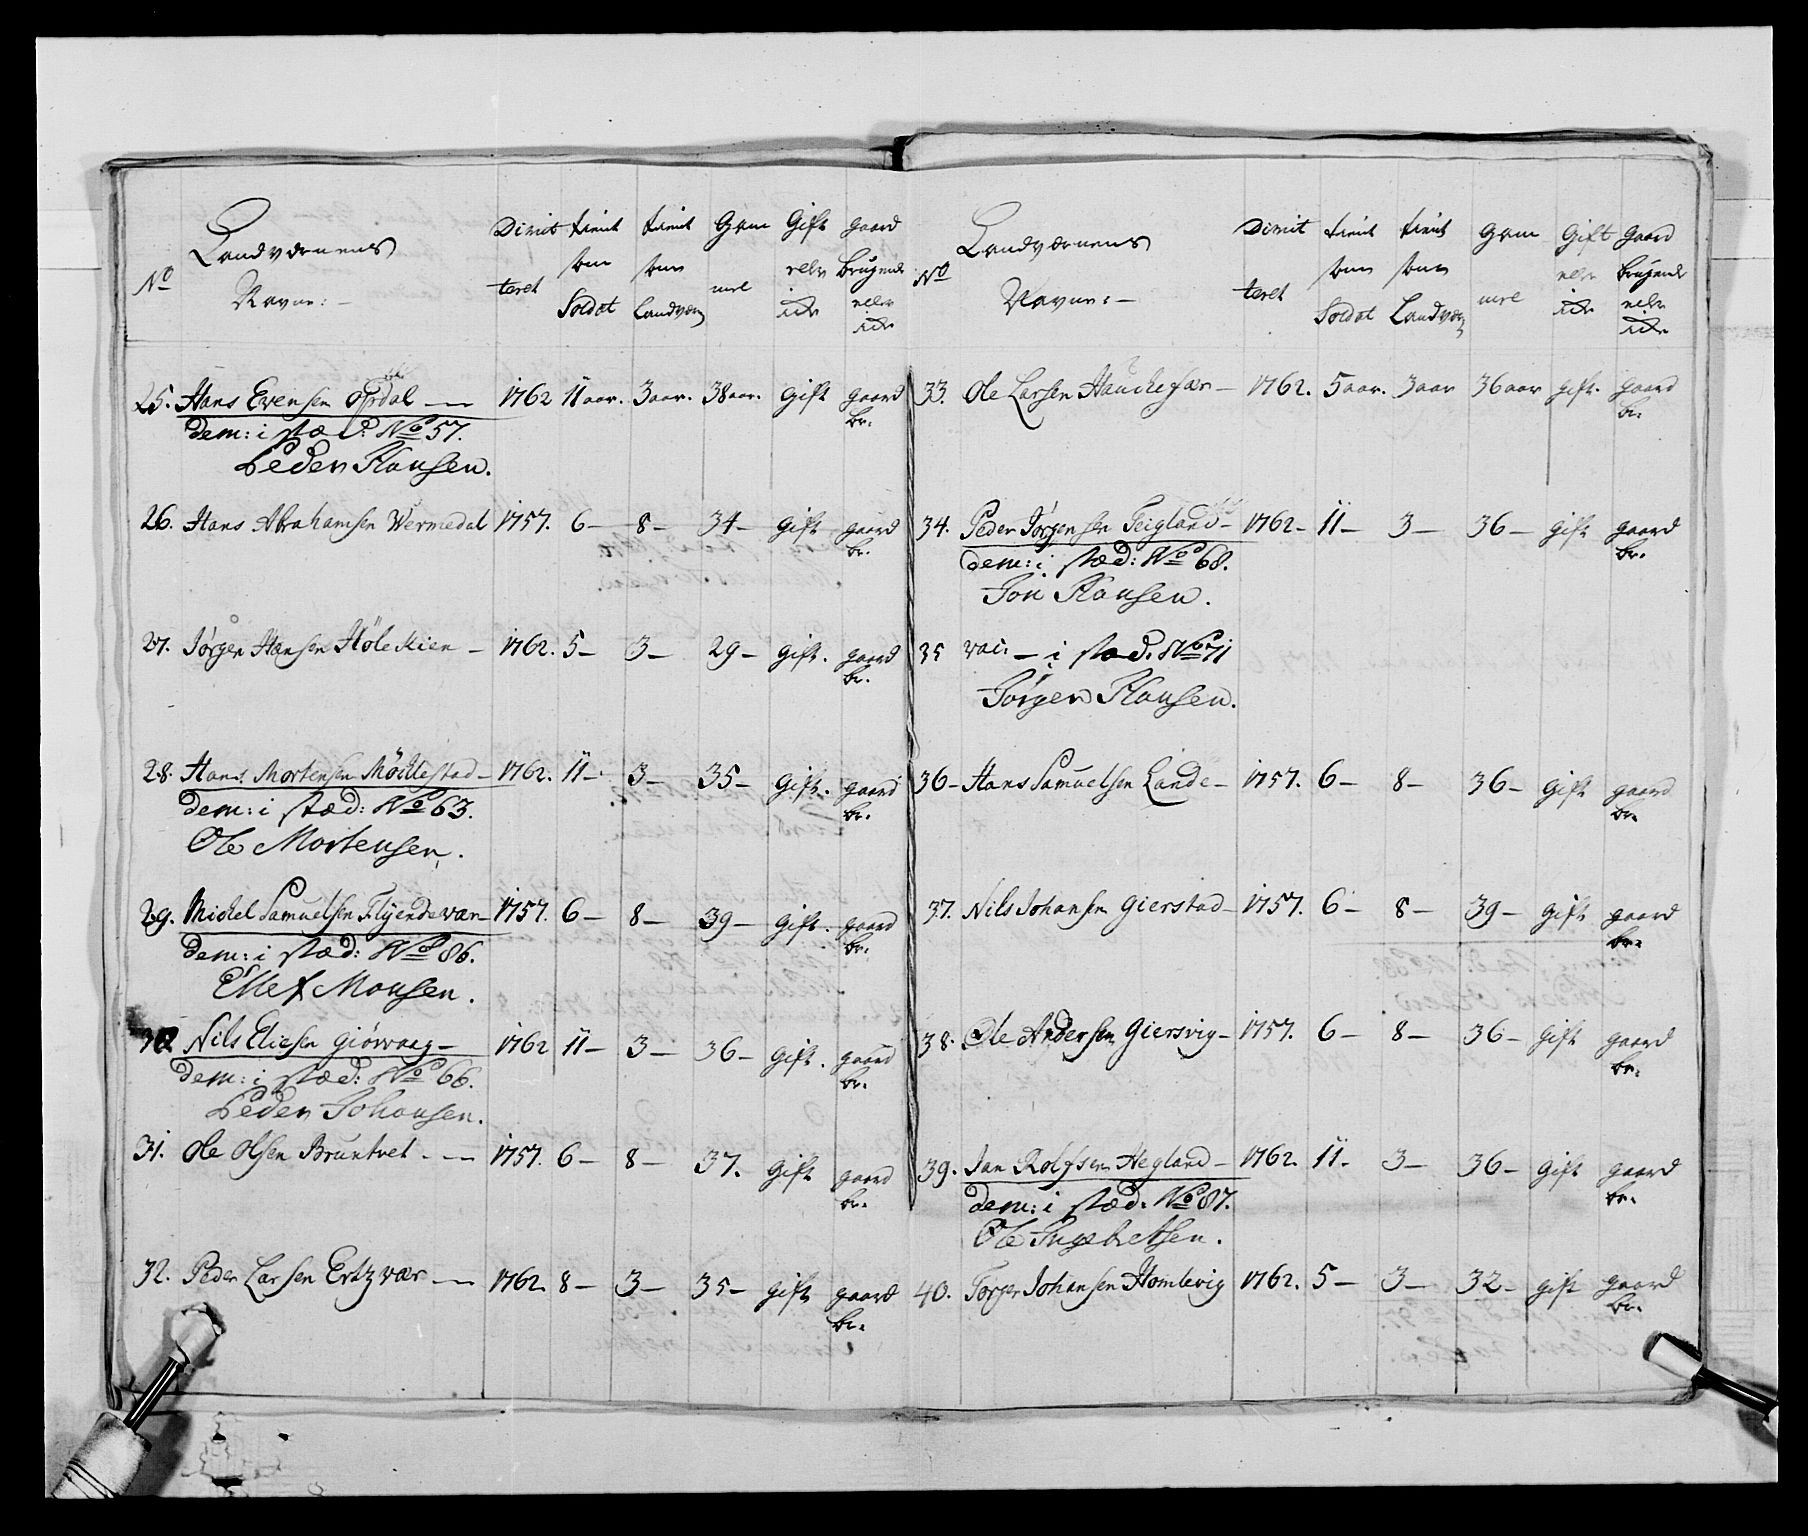 No Landværnens Navne:— Dimitteret tient som Soldat tient som Landværn Gammel Gift eller icke gaard brugende eller icke
25. Hans Evensen Opdal — 1762 11 aar. 3 aar. 38 aar. gift gaard br.
dem: i stæd: No 57.
Peder Hansen.
26. Hans Abrahamsen Wermedal 1757. 6— 8— 34— gift gaard br.
27. Jørgen Hansen — 1762. 5— 3— 29— gift. gaard br.
28. Hans Mortensen Möcklestad— 1762. 11— 3— 35— gift. gaard br.
dem: i stæd: No 63.
Ole Mortensen.
29. Michel Samuelsen — 1757. 6— 8— 39— gift. gaard br.
dem: i stæd: No 86.
Ellef Monsen.
30 Nils Eliesen Giørvaag— 1762 11— 3— 36— gift. gaard br.
dem: i stæd: No 66.
Peder Johansen.
31. Ole Olsen Bruntvet — 1757. 6— 8— 37. gift gaard br.
32. Peder Larsen Ertzvær — 1762. 8— 3— 35— gift gaard br.
No Landværnens Navne:— Dimitteret tient som Soldat tient som Landværn Gammel Gift eller icke gaard brugende eller icke
33. Ole Larsen — 1762. 5 aar. 3 aar 36 aar gift. gaard br.
34. Peder Jørgensen Teigland— 1762— 11— 3— 36— gift gaard br.
dem: i stæd: No 68.
Jon Hansen.
35 vac: — i stæd. No 71
Jørgen Hansen.
36— Hans Samuelsen Lande— 1757. 6— 8— 36— gift gaard br.
37. Nils Johansen Gierstad— 1757. 6— 8— 39— gift gaard br.
38. Ole Andersen Giersvig— 1757. 6— 8— 36— gift gaard br.
39. Jan Rolfsen Hegland— 1762. 11— 3— 36— gift gaard br.
dem: i stæd. No 87.
Ole Ingebretsen.
40. Torger Johansen Homlevig 1762. 5— 3— 32— gift gaard br.